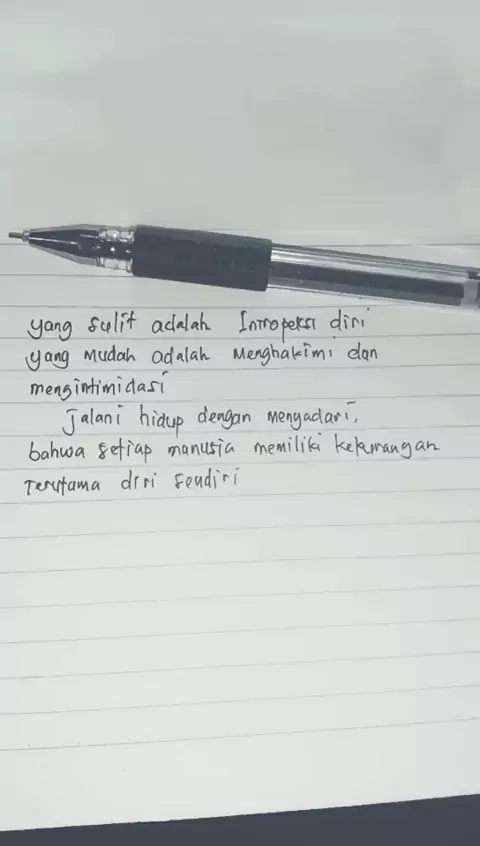 yang sulit adalah Intropeksi diri
yang mudah adalah Menghakimi dan
mengintimidasi
jalani hidup dengan menyadari,
bahwa setiap manusia memiliki kekurangan
Terutama diri sendiri